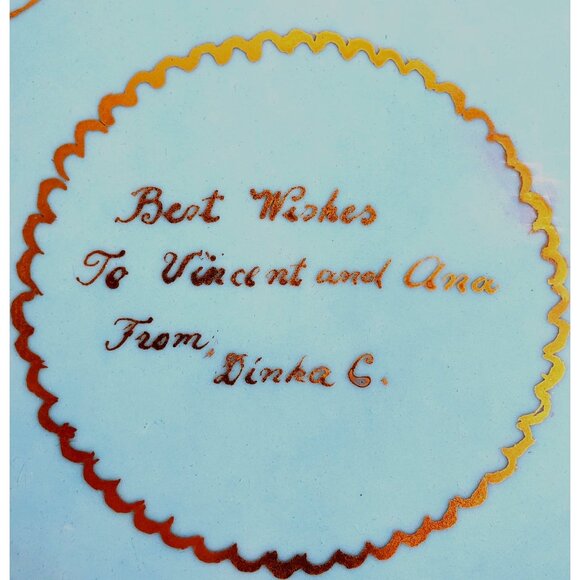 Best Wishes
To Vincent and Ana
From,
Dinka C.